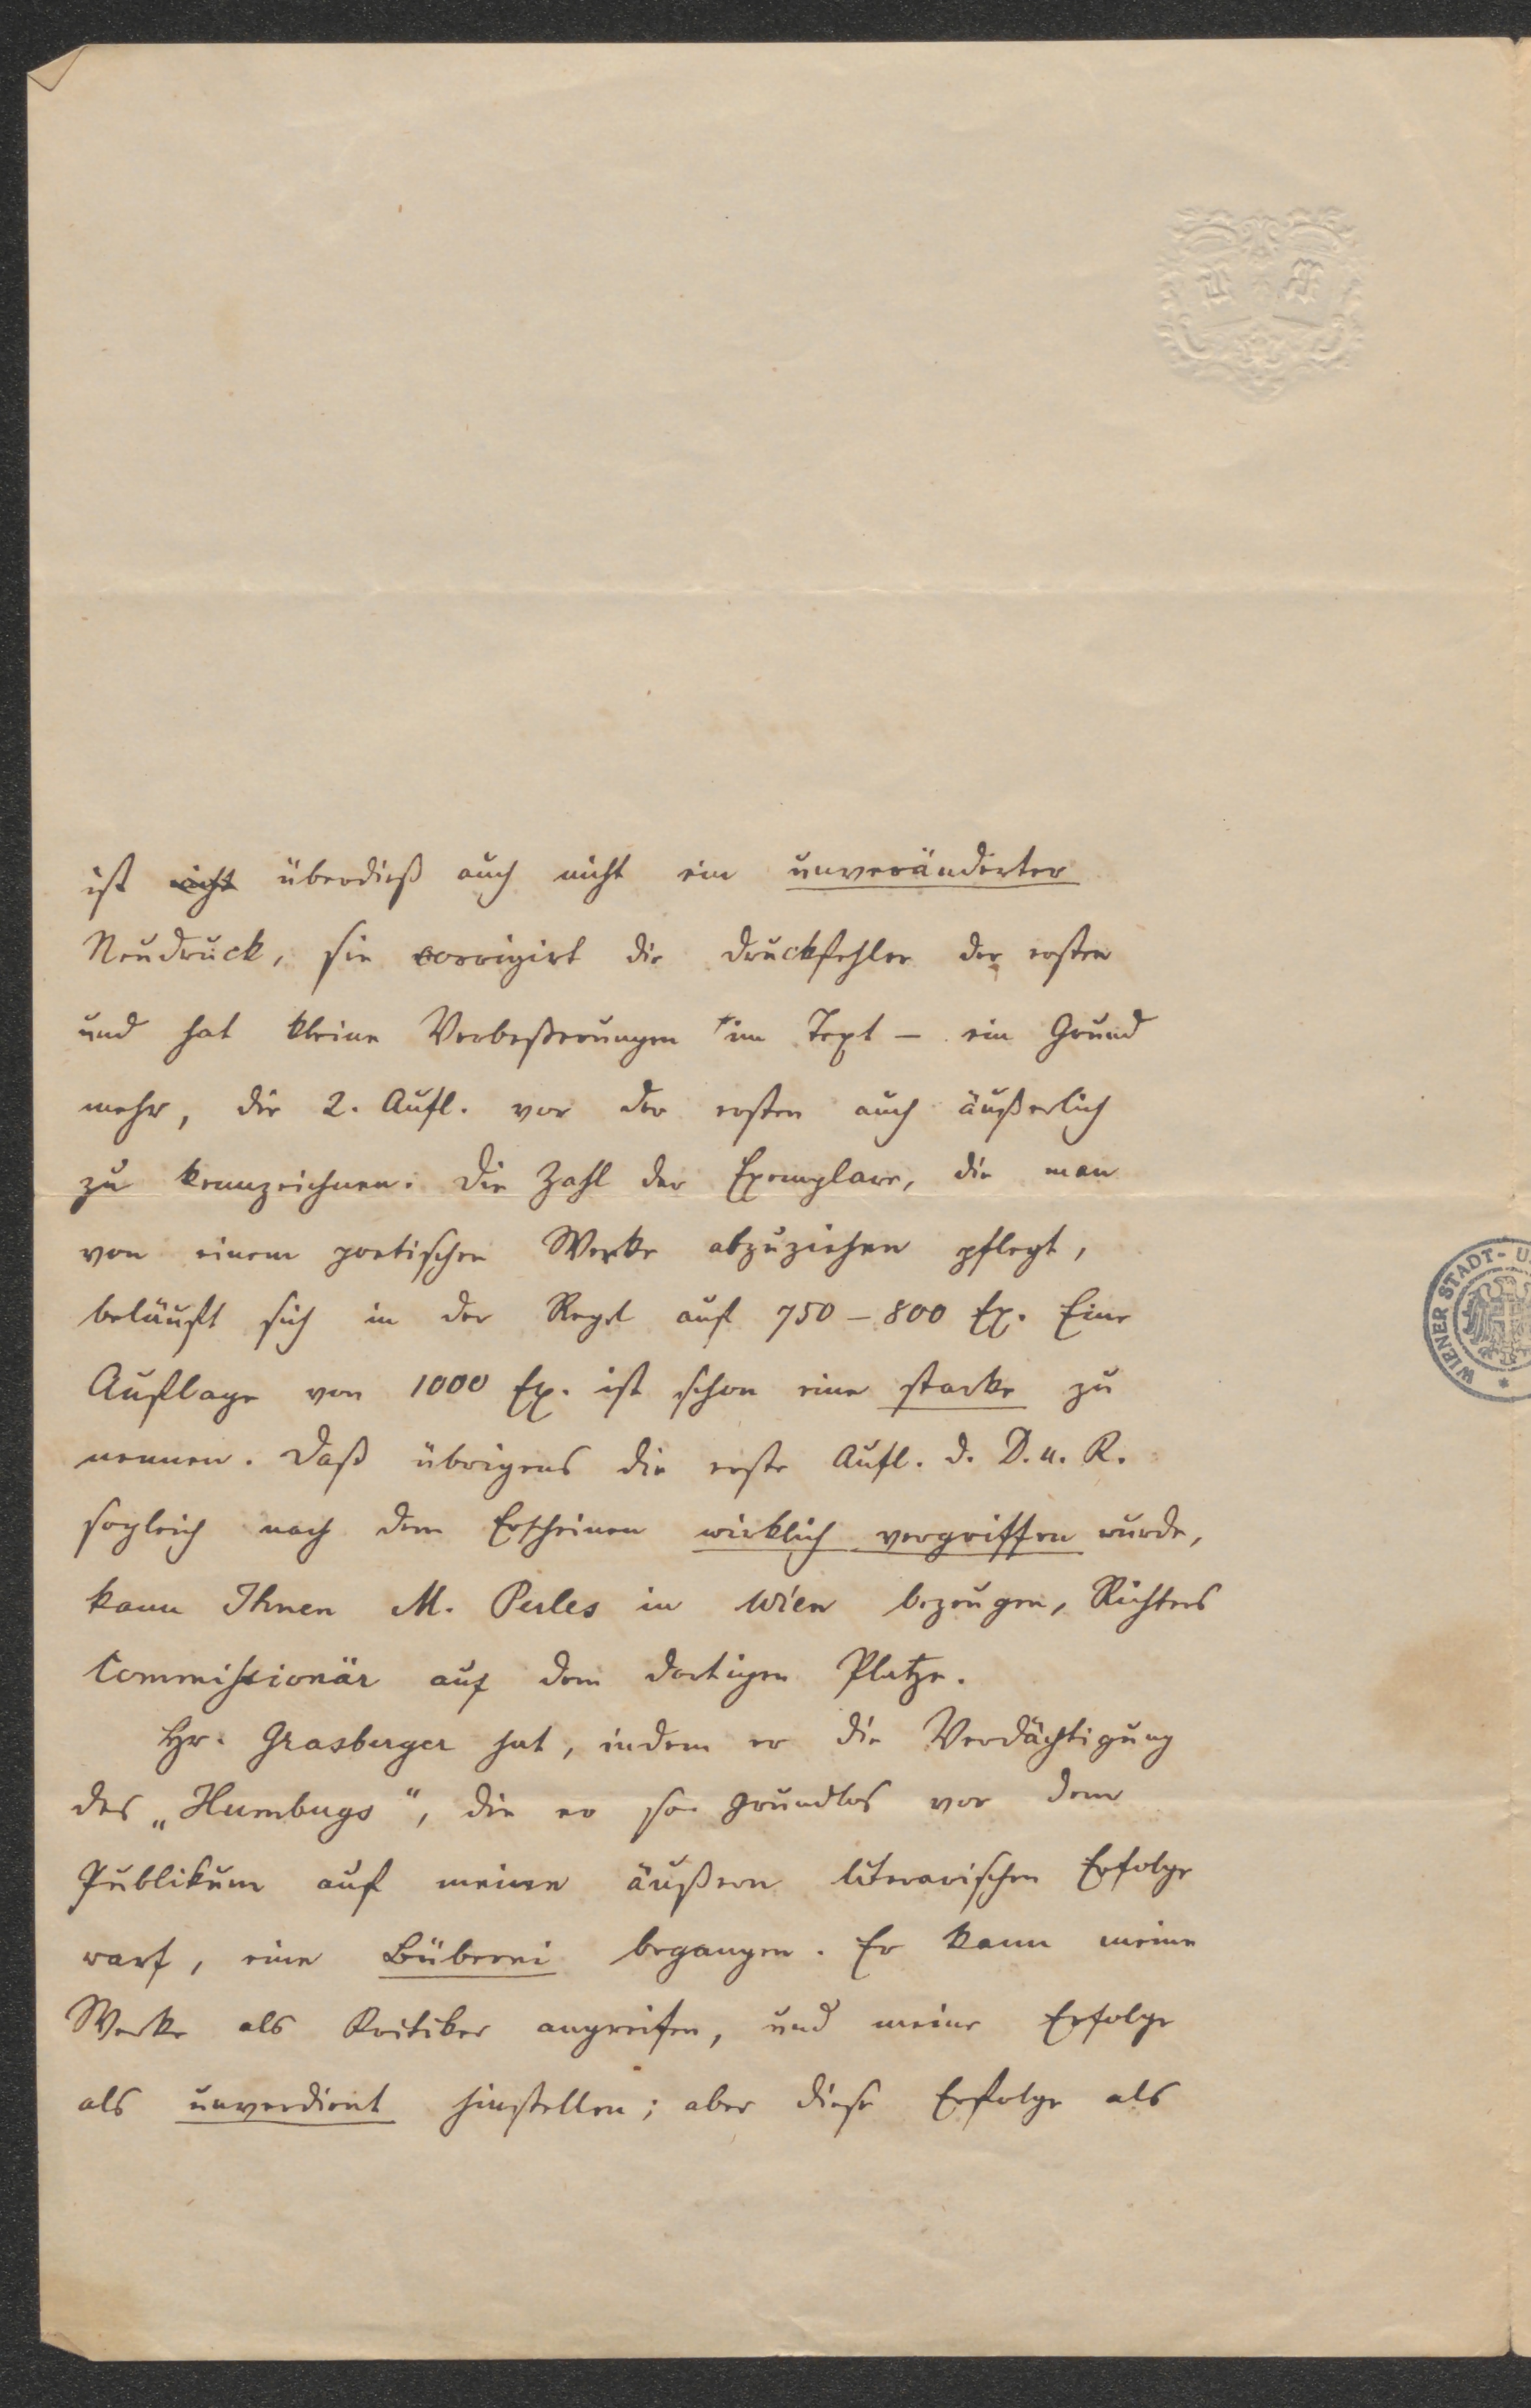 ist nicht überdieß auch nicht ein unveränderter
Neudruck, sie corrigirt die Druckfehler der ersten
und hat kleine Verbeßerungen im Text – ein Grund
mehr, die 2. Aufl. vor der ersten auch äußerlich
zu kennzeichnen. Die Zahl der Exemplare, die man
von einem poetischen Werke abzuziehen pflegt,
beläuft sich in der Regel auf 750 – 800 Ex. Eine
Auflage von 1000 Ex. ist schon eine starke zu
nennen. Daß übrigens die erste Aufl. d. D. u. R.
sogleich nach dem Erscheinen wirklich vergriffen wurde,
kann Ihnen M. Perles in Wien bezeugen, Richters
Commissionär auf dem dortigen Platze.
Hr. Grasberger hat, indem er die Verdächtigung
des „Humbugs“, die er so grundlos vor dem
Publikum auf meine äußern literarischen Erfolge
warf, eine Büberei begangen. Er kann meine
Werke als Kritiker angreifen, und meine Erfolge
als unverdient hinstellen; aber diese Erfolge als
WIENER STADT- U